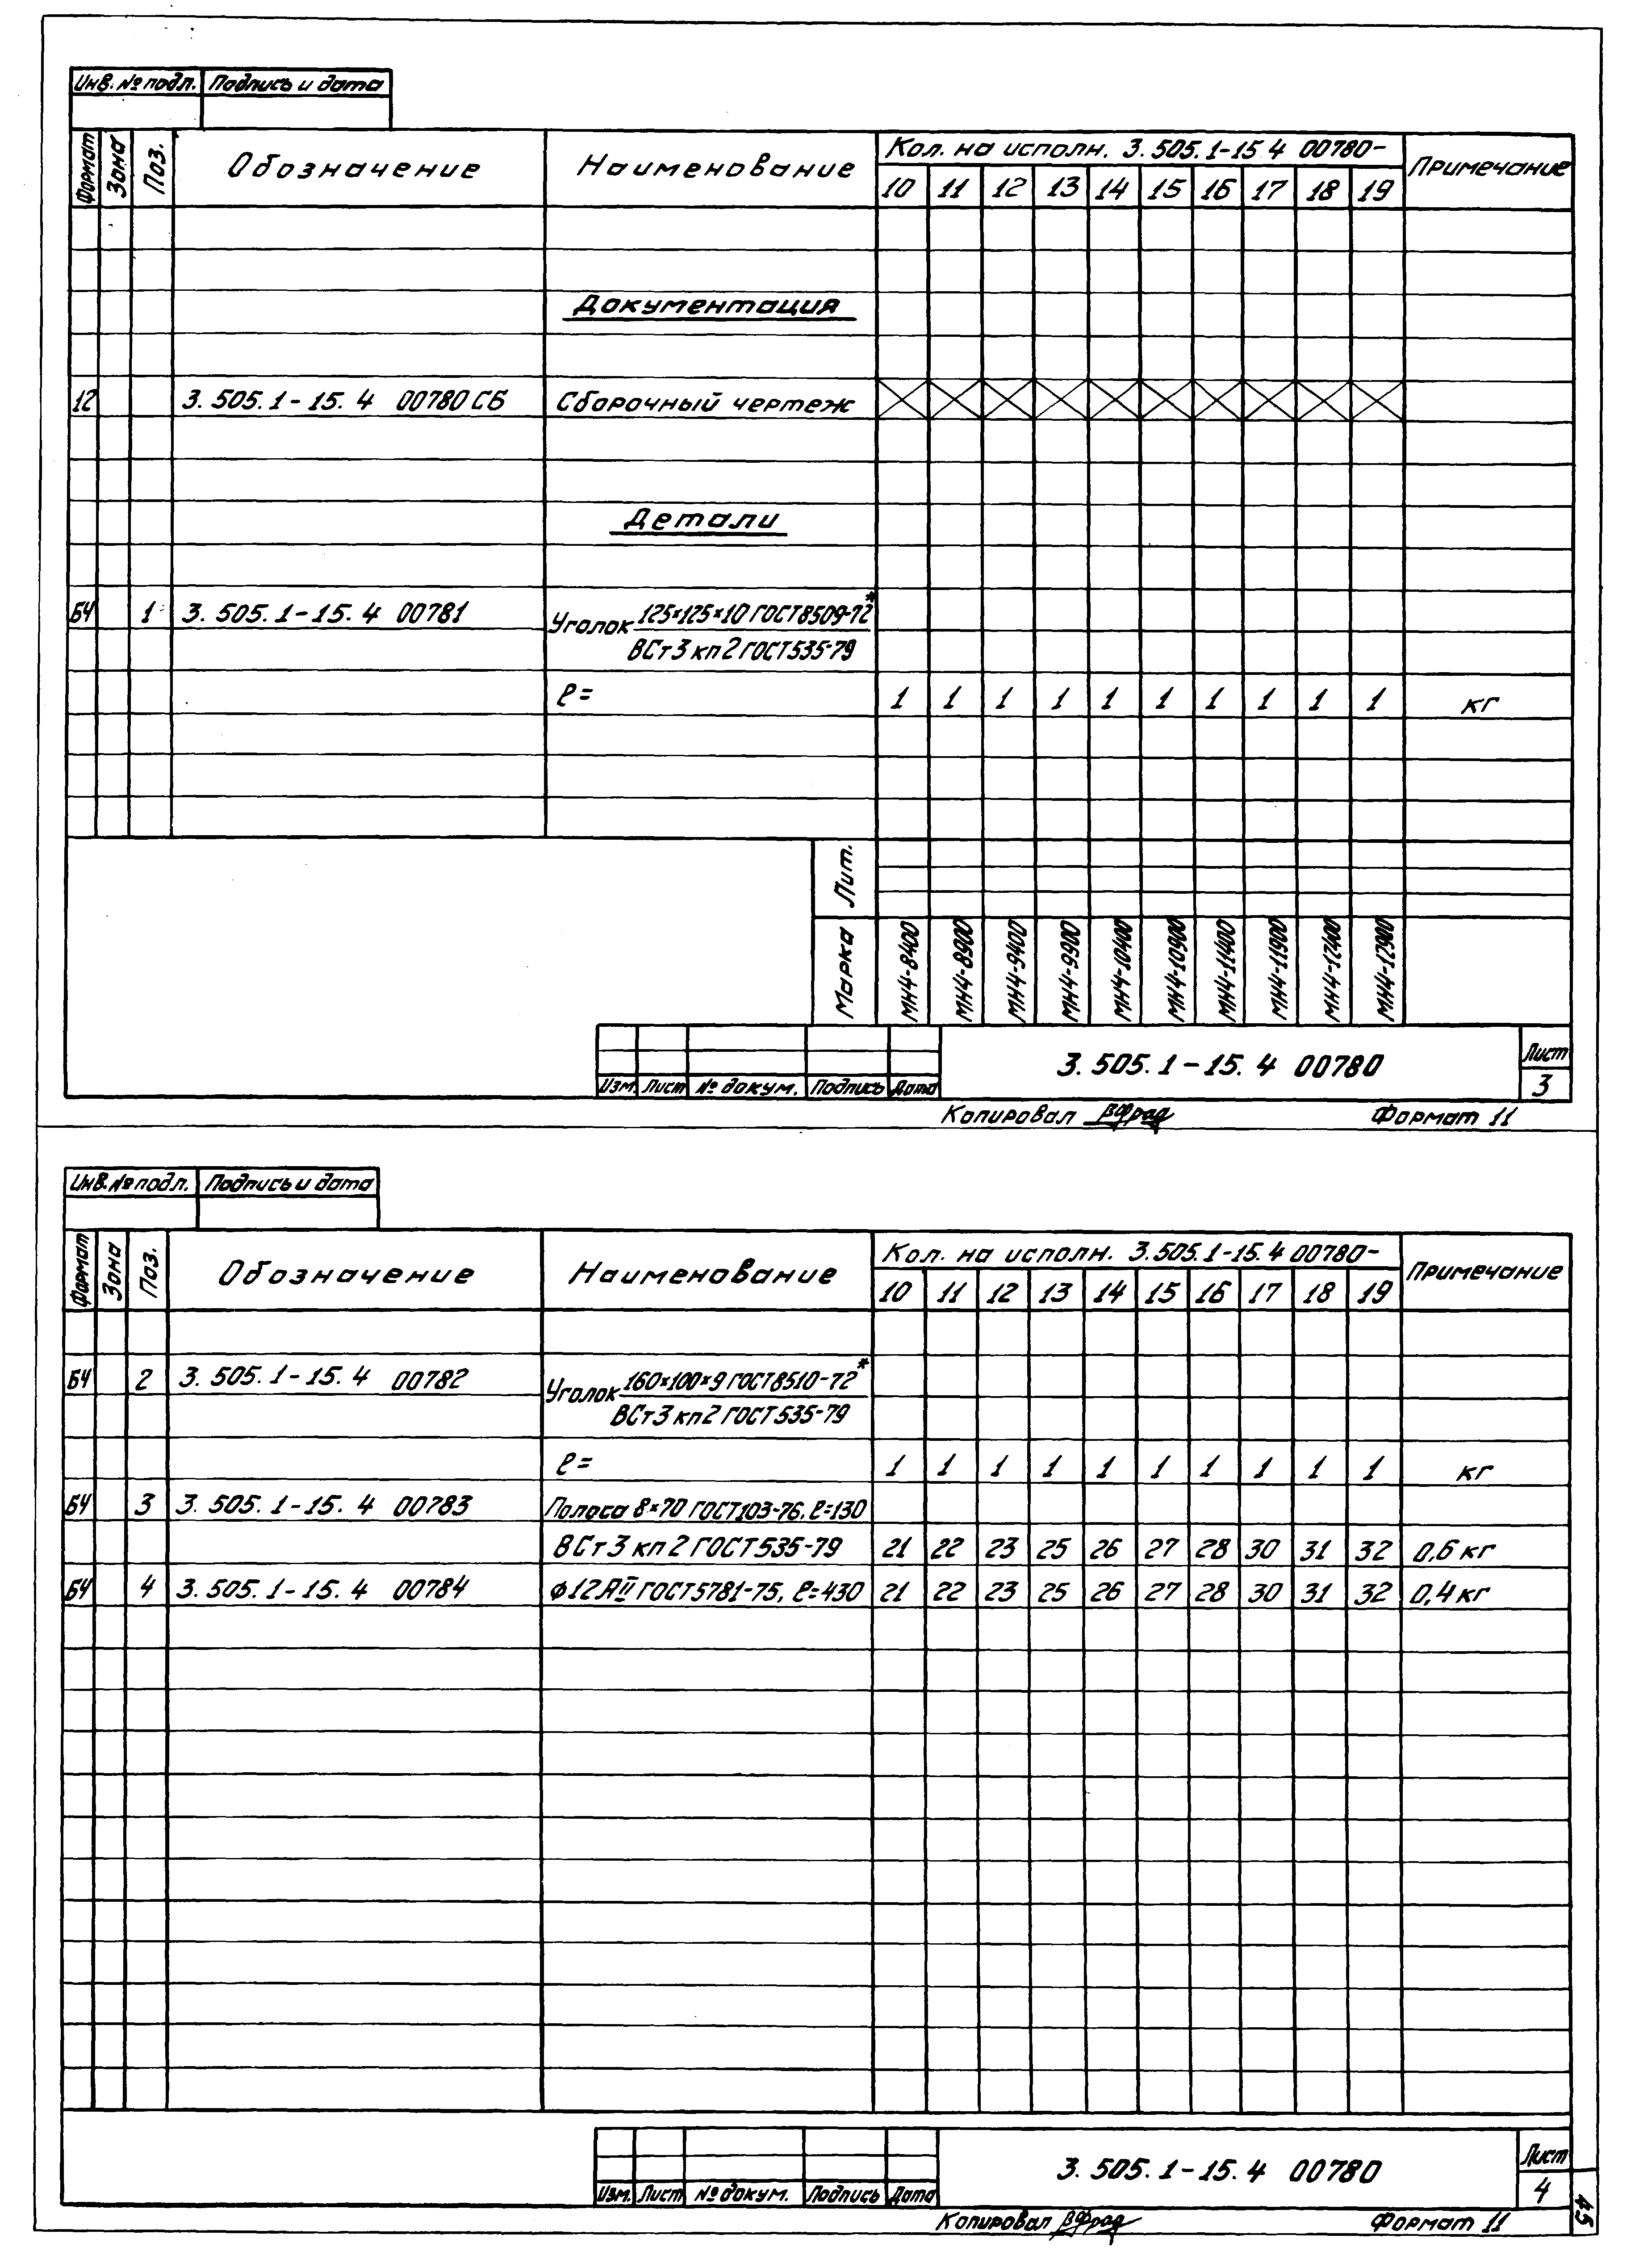 Инв. № подл. Подпись и дата
Формат Зона Поз. Обозначение Наименование Кол. на исполн. 3.505.1-15.4 00780- Примечание
10 11 12 13 14 15 16 17 18 19
Документация
12 3.505.1-15.4 00780СБ Сборочный чертеж
Детали
БЧ 1 3.505.1-15.4 00781 Уголок 125×125×10 ГОСТ 8509-72*
ВСт3кп2 ГОСТ 535-79
ℓ= 1 1 1 1 1 1 1 1 1 1 кг
Лит.
Марка МН4-8400 МН4-8900 МН4-9400 МН4-9900 МН4-10400 МН4-10900 МН4-11400 МН4-11900 МН4-12400 МН4-12900
3.505.1-15.4 00780 Лист
3
Изм. Лист № докум. Подпись Дата
Копировал Формат 11
Инв. № подл. Подпись и дата
Формат Зона Поз. Обозначение Наименование Кол. на исполн. 3.505.1-15.4 00780- Примечание
10 11 12 13 14 15 16 17 18 19
БЧ 2 3.505.1-15.4 00782 Уголок 160×100×9 ГОСТ 8510-72*
ВСт3кп2 ГОСТ 535-79
ℓ= 1 1 1 1 1 1 1 1 1 1 кг
БЧ 3 3.505.1-15.4 00783 Полоса 8×70 ГОСТ 103-76, ℓ=130
ВСт3кп2 ГОСТ 535-79 21 22 23 25 26 27 28 30 31 32 0,6 кг
БЧ 4 3.505.1-15.4 00784 ф12АII ГОСТ 5781-75, ℓ=430 21 22 23 25 26 27 28 30 31 32 0,4 кг
3.505.1-15.4 00780 Лист
4
Изм. Лист № докум. Подпись Дата
Копировал Формат 11
45